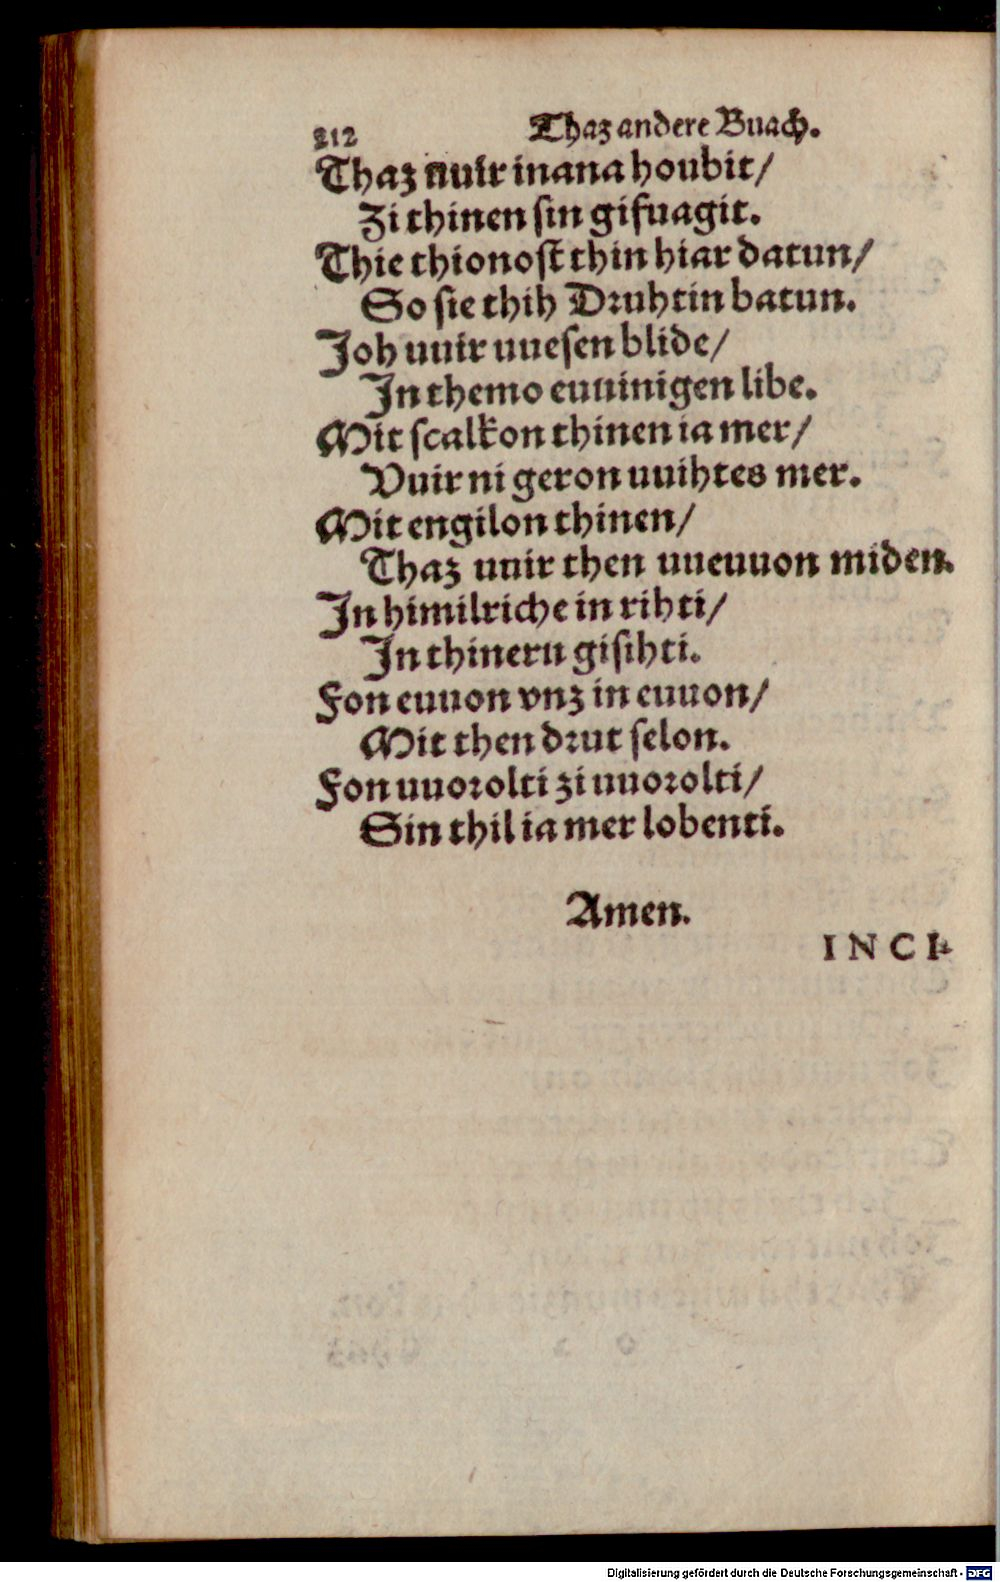 212 Thaz andere Buach.
Thaz uuir inana houbit/
Zi thinen sin gifuagit.
Thie thionost thin hiar datun/
So sie thih Druhtin batun.
Joh uuir uuesen blide/
In themo euuinigen libe.
Mit scalkon thinen ia mer/
Vuir ni geron uuihtes mer.
Mit engilon thinen/
Thaz uuir then uueuuon miden.
In himilriche in rihti/
In thineru gisihti.
Fon euuon vnz in euuon/
Mit then drut selon.
Fon uuorolti zi uuorolti/
Sin thil ia mer lobenti.
Amen.
INCI-
Digitalisierung gefördert durch die Deutsche Forschungsgemeinschaft - DFG